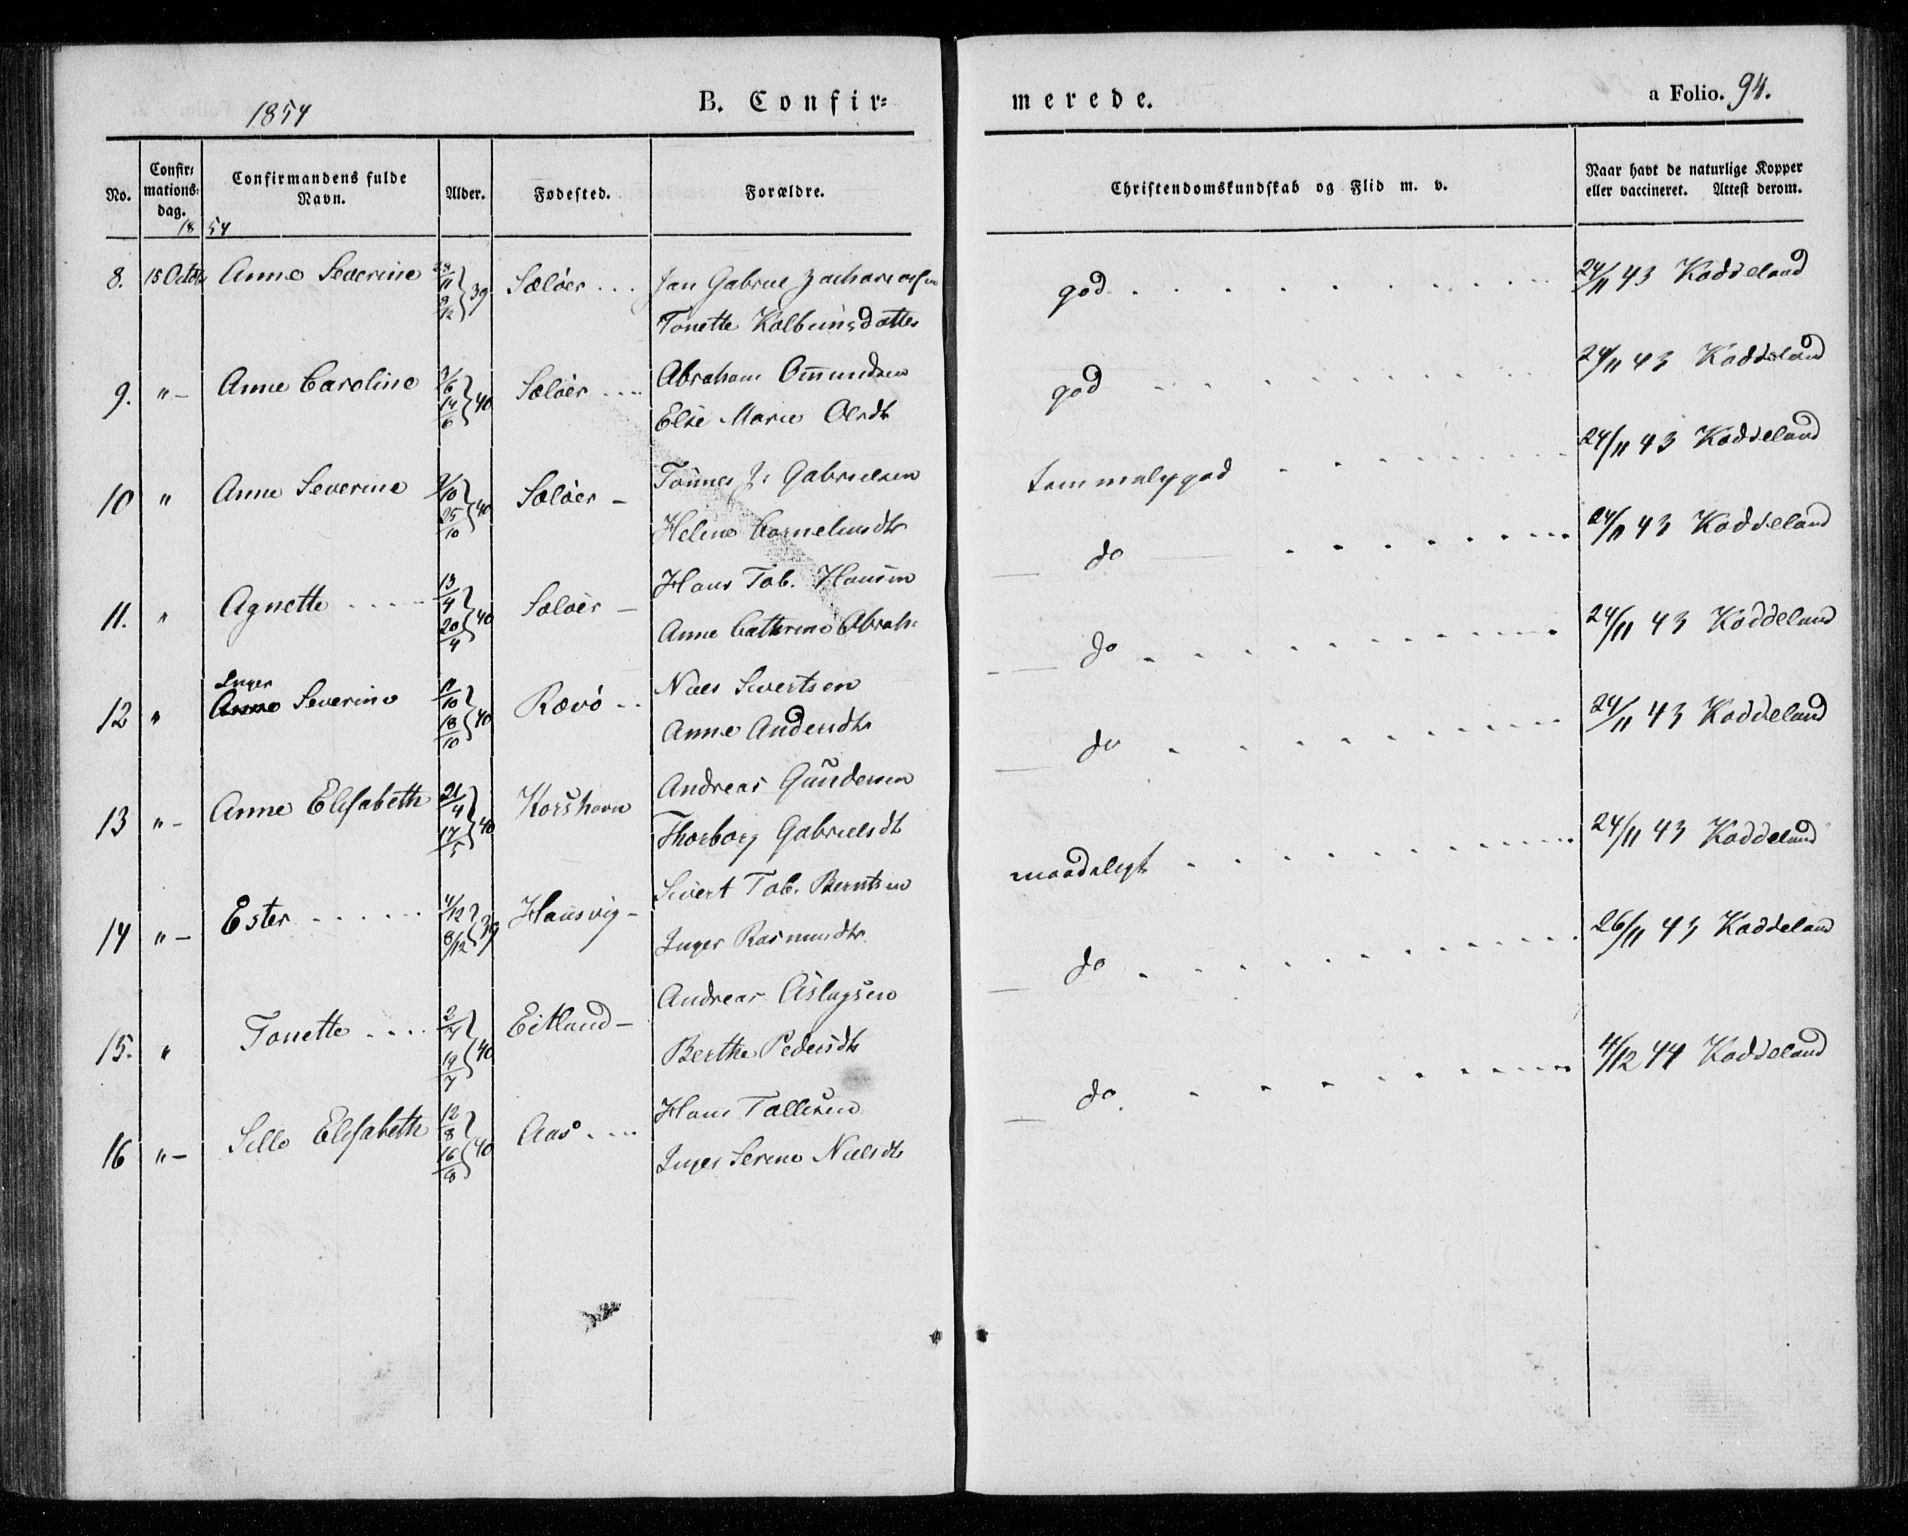 1854
B. Confir=
merede.
a Folio. 94.
No.
Confir=
mations=
dag.
Confirmandens fulde
Navn.
Alder.
Fødested.
Forældre.
Christendomskundskab og Flid m. v.
Naar havt de naturlige Kopper
eller vaccineret. Attest derom.
18 54
8. 15 Octbr Anne Severine 28/11 9/12 39 Sæløer ... Jan Gabriel Zachariasen
Tonette Kolbeinsdatter
god 24/11 43 Koddeland
9. " - Anne Caroline 7/6 14/6 40 Sæløer .... Abraham Ommundsen
Else Marie Olsdt
god 24/11 43 Koddeland
10 " Anne Severine 9/10 25/10 40 Sæløer - Tønnes J. Gabrielsen
Helene Corneliusdtr
temmelig god 24/11 43 Koddeland
11. " Agnette ..... 13/4 20/4 40 Sæløer - Hans Tob. Hansen
Anne Cathrine Abrah:
do 24/11 43 Koddeland
12 " Inger
Anne Severine 11/10 18/10 40 Rævø .. Naes Sivertsen
Anne Andersdtr
do 24/11 43 Koddeland
13 " - Anne Elisabeth 21/4 17/5 40 Korshavn Andreas Gundersen
Thorborg Gabrielsdt
do 24/11 43 Koddeland
14 " - Ester ...... 4/12 8/12 39 Hausvig - Sivert Tob. Berntsen
Inger Rasmusdtr.
maadeligt 24/11 43 Koddeland
15. " Tonette .... 2/7 19/7 40 Eitland - Andreas Aslagsen
Berthe Pedersdtr
do 26/11 43 Koddeland
16 " - Sille Elisabeth 12/8 16/8 40 Aas .... Hans Tallesen
Inger Serine Nælsdtr
do 4/12 44 Koddeland